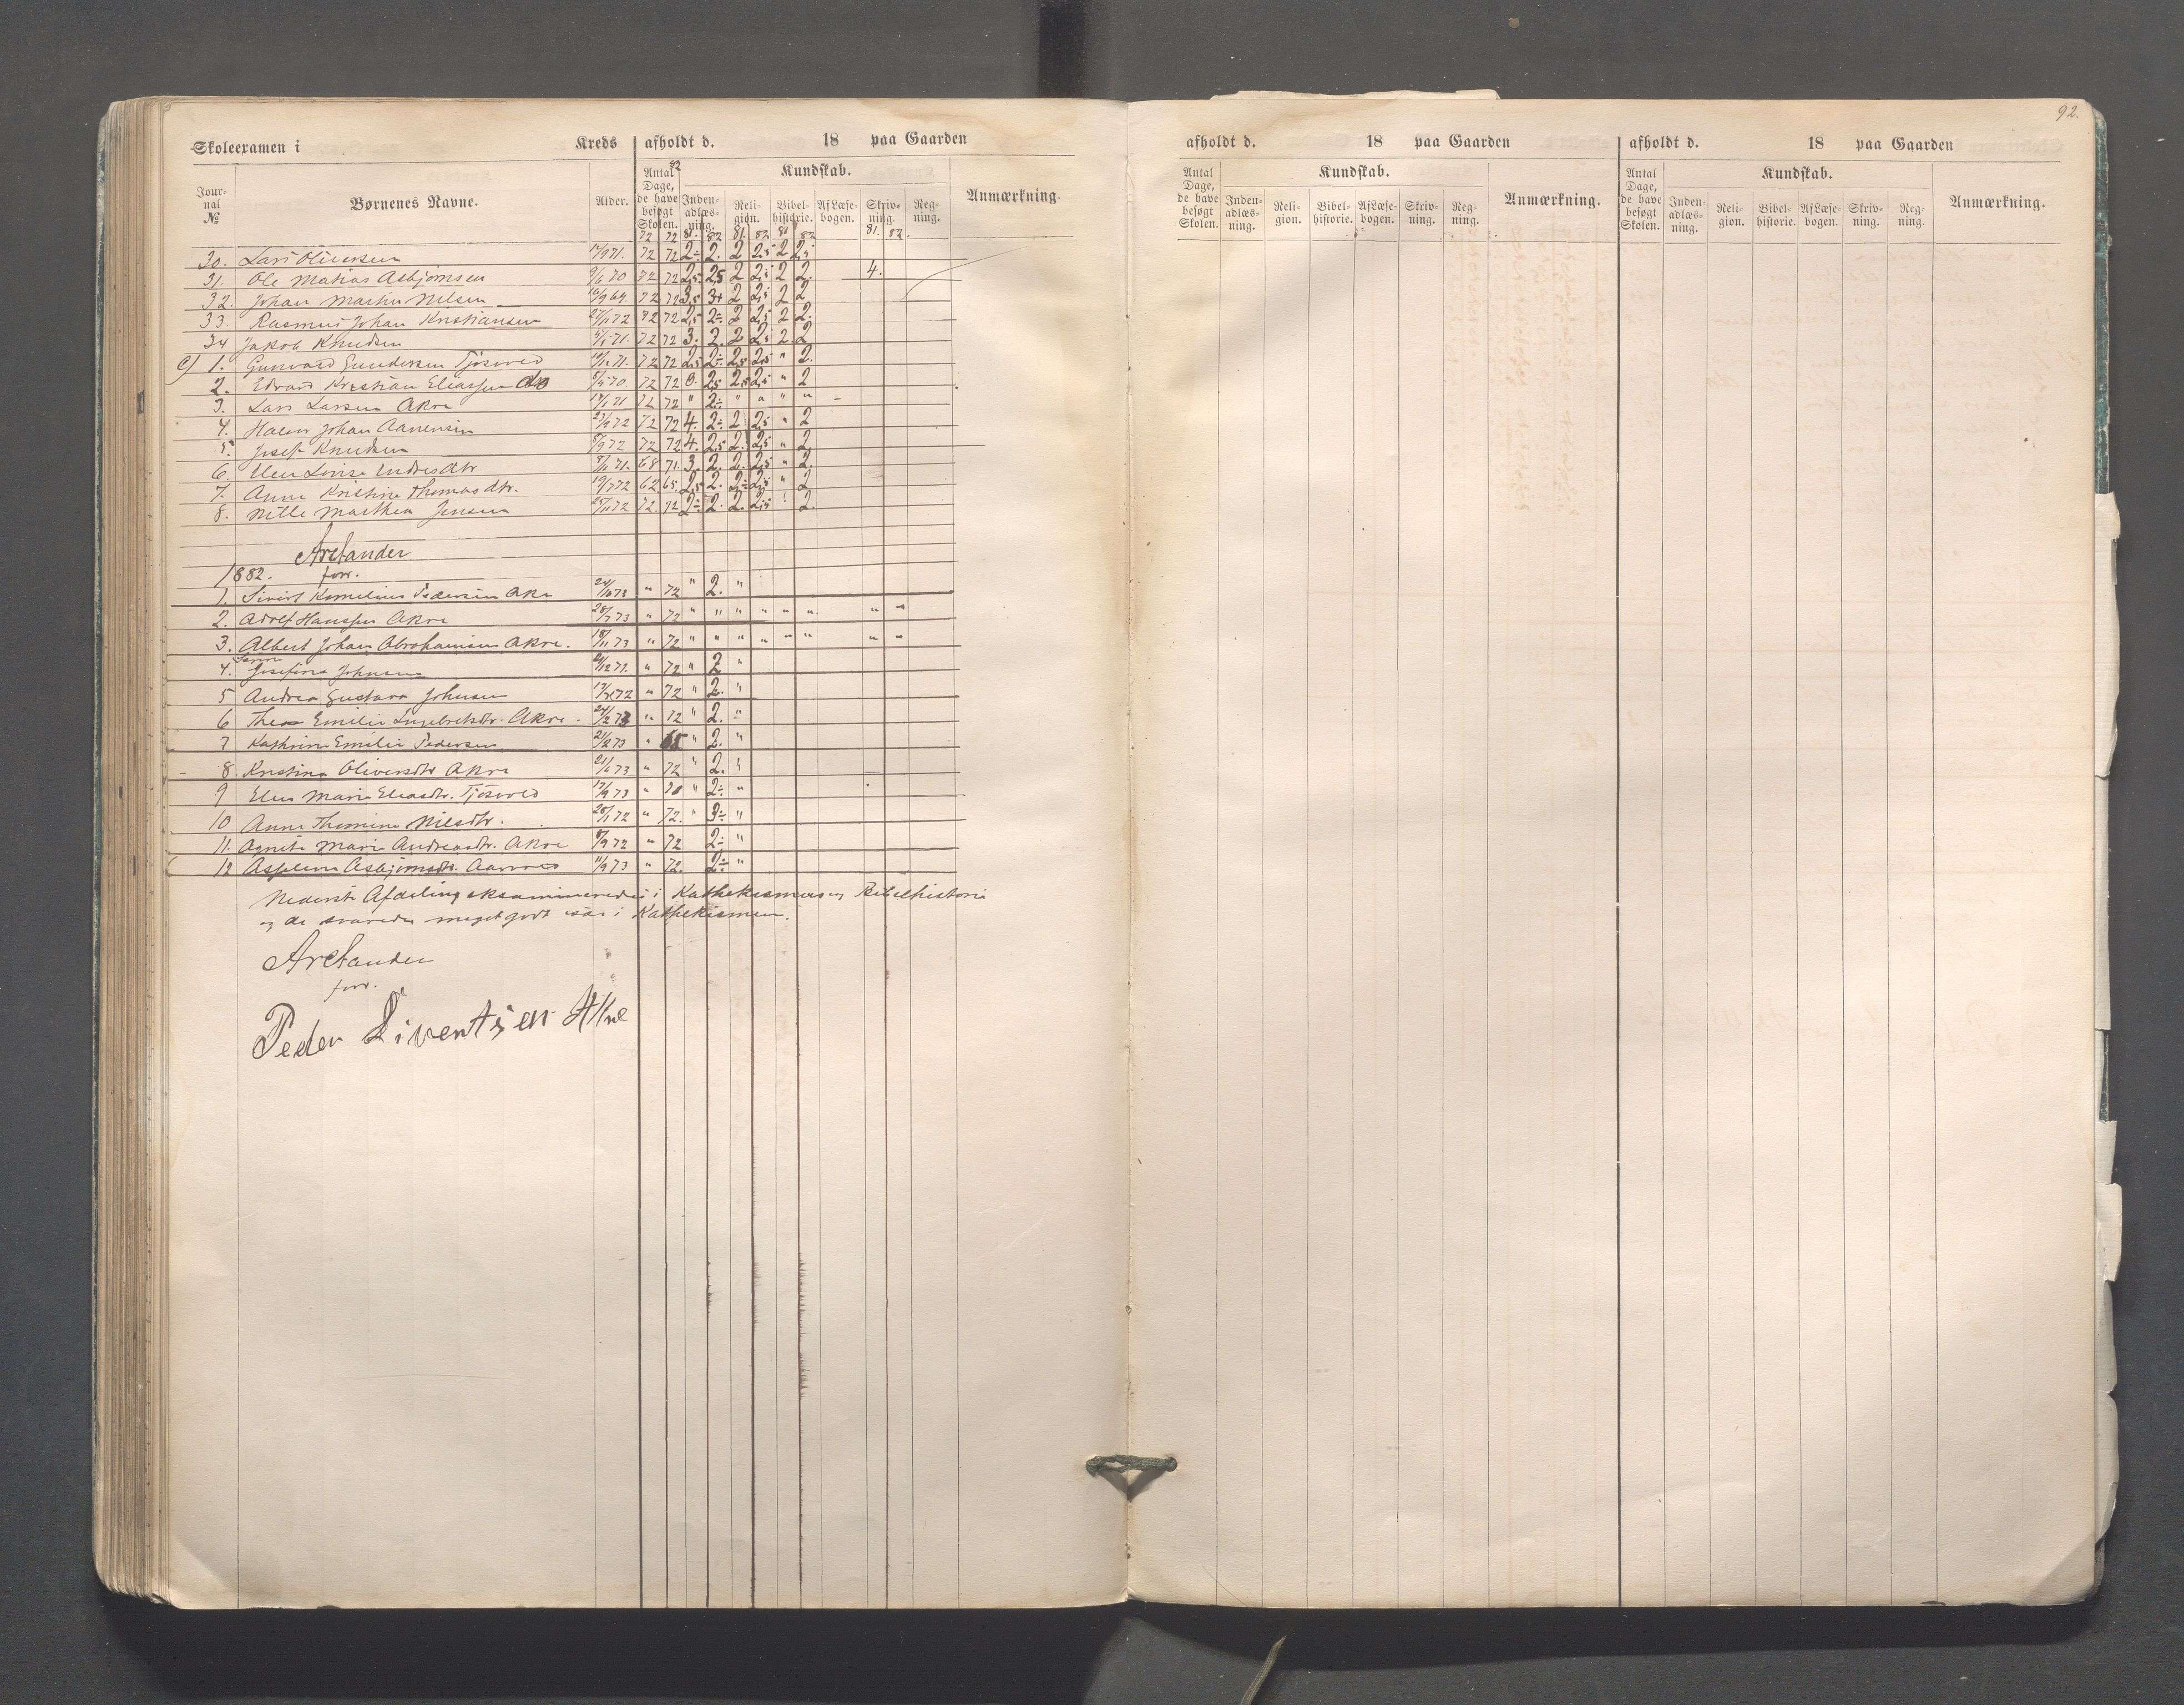 92.
Skoleexamen i Kreds afholdt d. 18 paa Gaarden
Jour-nal № Børnenes Navne. Alder. Antal Dage, de have besøgt Skolen. Kundskab. Inden-adlæs-ning. Reli-gion. Bibel-historie. Af Læse-bogen. Skriv-ning. Reg-ning. Anmærkning.
82
72 72 81. 82 81. 82 81 82 81. 82.
30. Lars Oliversen 971. 72 72 2÷ 2. 2 2,5 2 2,5
31. Ole Matias Asbjørnsen 9/6 70 72 72 2,5 2,5 2 2,5 2 2. 4.
32. Johan Martin Nilsen 16/9 69. 72 72 3,5 3+ 2 2,5 2 2
33. Rasmus Johan Kristiansen 27/11 72 72 72 2,5 2÷ 2 2,5 2 2.
34 Jakob Knudsen 5/1 71. 72 72 3. 2. 2 2,5 2 2
C) 1. Gunvald Gundersen Tjøsvold 71. 72 72 2,5 2÷ 2,5 2,5 " 2.
2. Edvard Kristian Eliassen do 70. 72 72 3. 2,5 2,5 2,5 " 2
3. Lars Larsen Akre 71 72 72 " 2÷ " " " " -
4. Johan Aanensen 72 72 72 4. 2÷ 2 2,5 " 2
5. Josef Knudsen 8/9 72 72 72 4. 2,5 2. 2,5 " 2
6. Elen Lovise Endresdtr 71. 68 71. 3. 2. 2. 2,5 " 2.
7. Anne Kristine Thomasdtr. 19/7 72 62 65. 2,5 2. 2÷ 2,5 " 2
8. Nille Marthea Jensen 25/11 72 72. 72 2÷ 2. 2. 2,5 2.
Arctander
forr.
1882.
1. Sivert Kornelius Pedersen Akre 73 " 72 " 2. "
2. Adolf Hanssen Akre 28/7 73 " 72 " " " " " " " "
3. Albert Johan Abrahamsen Akre. 18/11 73 " 72 " " " " " " " "
4. Josefine Johnsen 12 72. " 72 " 2 "
5 Andrea Gustava Johnsen 72 " 72 " 2. "
6 Thea Emilie Ingebretsdtr. Akre. 24/2 73 " 72 " 2. "
7 Kathrine Emilie Pedersen 21/2 73 " 65 " 2. "
8. Kristine Oliversdtr Akre 21/6 73 " 72 " 2. "
9 Elen Marie Eliasdtr. Tjøsvold 17/9 73 " 70 " 2÷ "
10 Anne Thomine Nilsdtr. 28/1 72 " 72. " 3÷ "
11. Agnete Marie Andreasdtr. Akre 9 72 " 72 2÷ "
12 Asbjørnsdtr. 11/9 73 " 72. 2÷ "
Nederste Afdeling eksamineredes i Kathekismus og Bibelhistorie
og de svarede meget godt især i Kathekismen.
Arctander
forr.
Peder Siventsen Akre
afholdt d. 18 paa Gaarden
Antal Dage, de have besøgt Skolen. Kundskab. Inden-adlæs-ning. Reli-gion. Bibel-historie. Af Læse-bogen. Skriv-ning. Reg-ning. Anmærkning.
afholdt d. 18 paa Gaarden
Antal Dage, de have besøgt Skolen. Kundskab. Inden-adlæs-ning. Reli-gion. Bibel-historie. Af Læse-bogen. Skriv-ning. Reg-ning. Anmærkning.